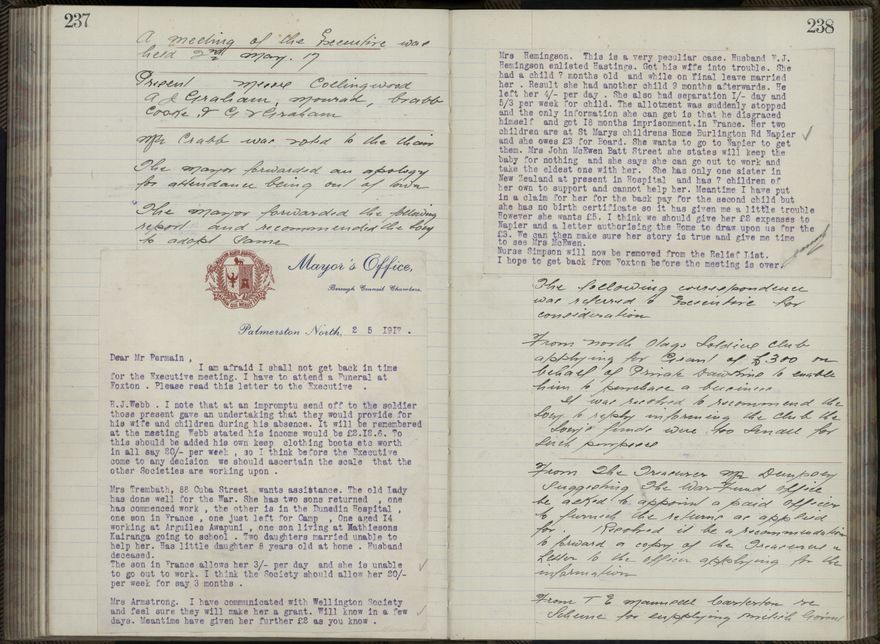 237
A meeting of the Executive was
held 2nd May. 17
Present Messrs Collingwood
A J Graham, Mounrad, Crabb
Cooke, & G Graham
Mr Crabb was voted to the chair
The Mayor forwarded an apology
for attendance being out of town
The Mayor forwarded the following
report and recommended the Socy
to adopt same
Mayor's Office,
Borough Council Chambers.
Palmerston North, 2 5 1917 .
Dear Mr Permain ,
I am afraid I shall not get back in time
for the Executive meeting. I have to attend a Funeral at
Foxton . Please read this letter to the Executive .
R.J.Webb . I note that at an impromptu send off to the soldier
those present gave an undertaking that they would provide for
his wife and children during his absence. It will be remembered
at the meeting Webb stated his income would be £2.12.6. To
this should be added his own keep clothing boots etc worth
in all say 20/- per week , so I think before the Executive
come to any decision we should ascertain the scale that the
other Societies are working upon .
Mrs Trembath, 88 Cuba Street wants assistance. The old lady
has done well for the War. She has two sons returned , one
has commenced work , the other is in the Dunedin Hospital ,
one son in France , one just left for Camp , One aged 14
working at Arguiles Awapuni , one son living at Mathiesons
Kairanga going to school . Two daughters married unable to
help her. Has little daughter 8 years old at home . Husband
deceased.
The son in France allows her 3/- per day and she is unable
to go out to work. I think the Society should allow her 20/-
per week for say 3 months .
Mrs Armstrong. I have communicated with Wellington Society
and feel sure they will make her a grant. Will know in a few
days. Meantime have given further £2 as you know .
238
Mrs Hemingson. This is a very peculiar case. Husband W.J.
Hemingson enlisted Hastings. Got his wife into trouble. She
had a child 7 months old and while on final leave married
her . Result she had another child 9 months afterwards. He
left her 4/- per day . She also had separation 1/- day and
5/3 per week for child. The allotment was suddenly stopped
and the only information she can get is that he disgraced
himself and got 18 months imprisonment in France. Her two
children are at St Marys childrens Home Burlington Rd Napier
and she owes £3 for Board. She wants to go to Napier to get
them. Mrs John McEwen Batt Street she states will keep the
baby for nothing and she says she can go out to work and
take the eldest one with her. She has only one sister in
New Zealand at present in Hospital and has 7 children of
her own to support and cannot help her. Meantime I have put
in a claim for her for the back pay for the second child but
she has no birth certificate so it has given me a little trouble
However she wants £5. I think we should give her £2 expenses to
Napier and a letter authorising the Home to draw upon us for the
£3. We can then make sure her story is true and give me time
to see Mrs McEwen.
Nurse Simpson will now be removed from the Relief List.
I hope to get back from Foxton before the meeting is over.
The following correspondence
was referred to Executive for
consideration
From North Soldiers Club
applying for Grant of £300 on
behalf of Private to enable
him to purchase a business
It was resolved to recommend the
Socy to reply informing the Club the
Socy's funds were too small for
such purposes
From The Treasurer Mr Dempsey
suggesting The War Fund Office
be asked to appoint a paid officer
to furnish the returns as applied
for. Resolved it be a recommendation
to forward a copy of the Treasurers
letter to the officer applying for the
information
From T E Maunsell Carterton re
Scheme for employing British